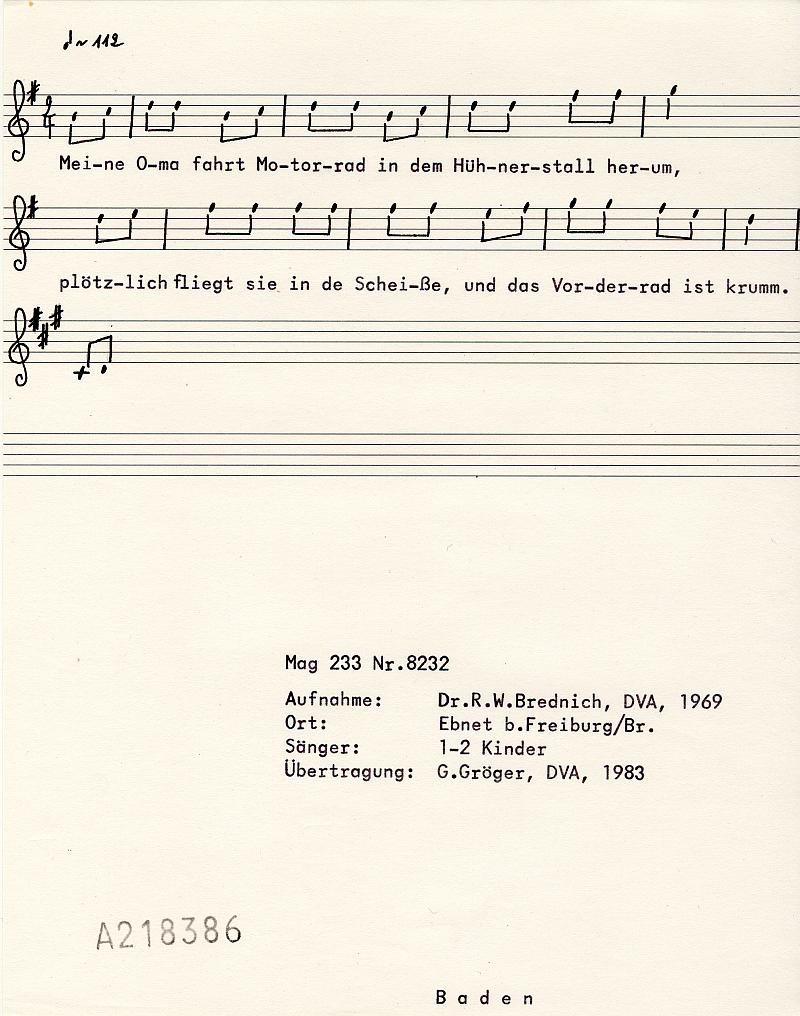 ♩~ 112
2/4
Mei-ne O-ma fahrt Mo-tor-rad in dem Hüh-ner-stall her-um,
plötz-lich fliegt sie in de Schei-ße, und das Vor-der-rad ist krumm.
Mag 233 Nr.8232
Aufnahme: Dr.R.W.Brednich, DVA, 1969
Ort: Ebnet b.Freiburg/Br.
Sänger: 1-2 Kinder
Übertragung: G.Gröger, DVA, 1983
A218386
Baden